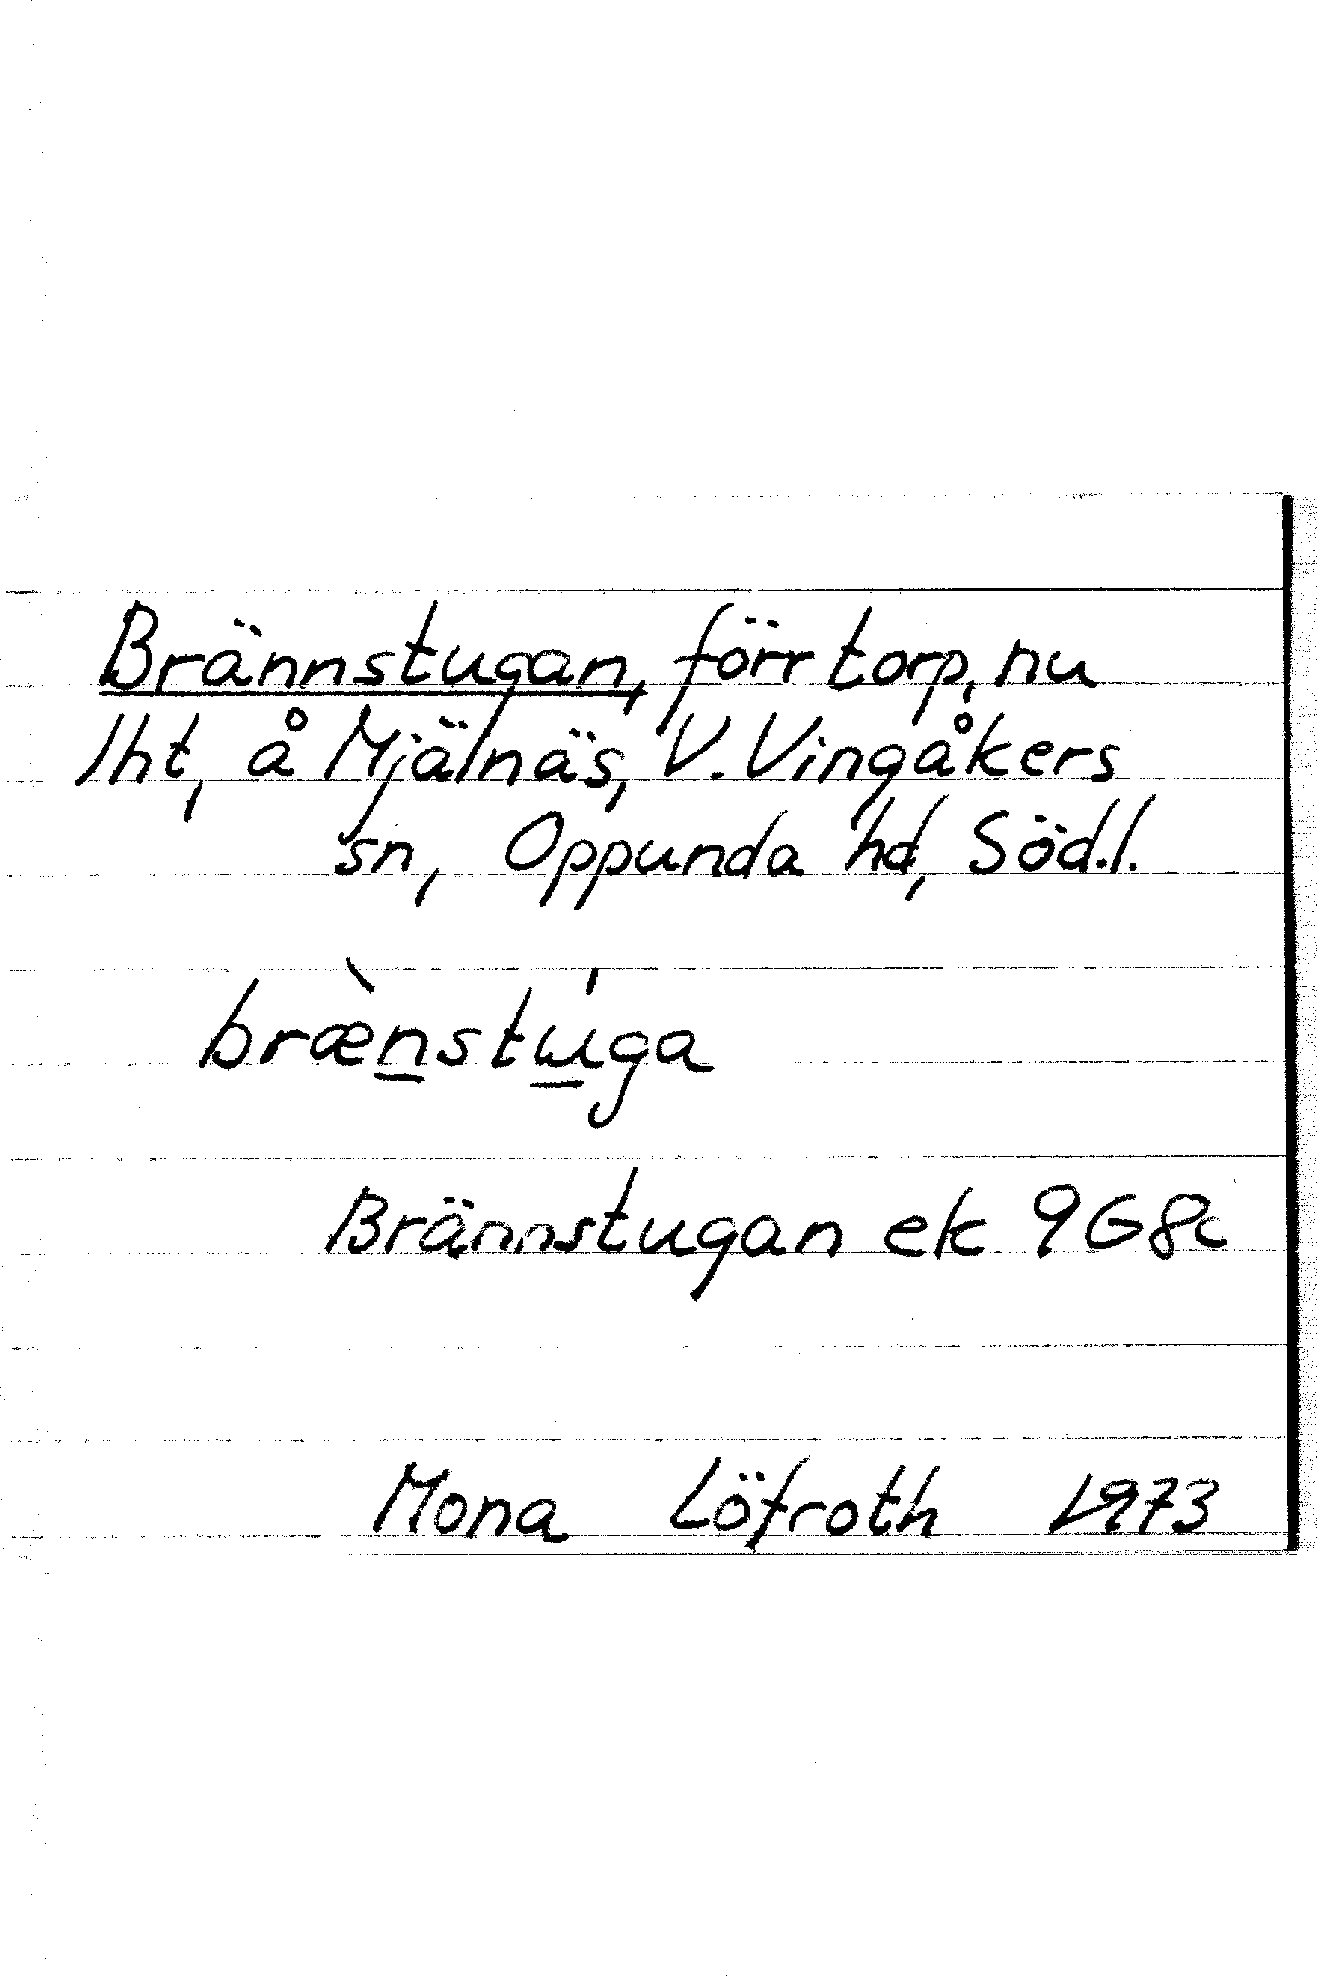 Brännstugan, förr torp, nu
lht, å Mjälnäs, V. Vingåkers
sn, Oppunda hd, Söd.l.
bræ̀nstɯ́ga
Brännstugan ek 9G8c
Mona Löfroth 1973